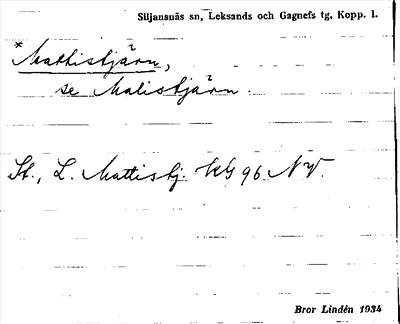 Siljansnäs sn, Leksands och Gagnefs tg, Kopp. l.
*Mathistjärn,
se Malistjärn.
St., L. Mattistj. KG 96 NV.
Bror Lindén 1934